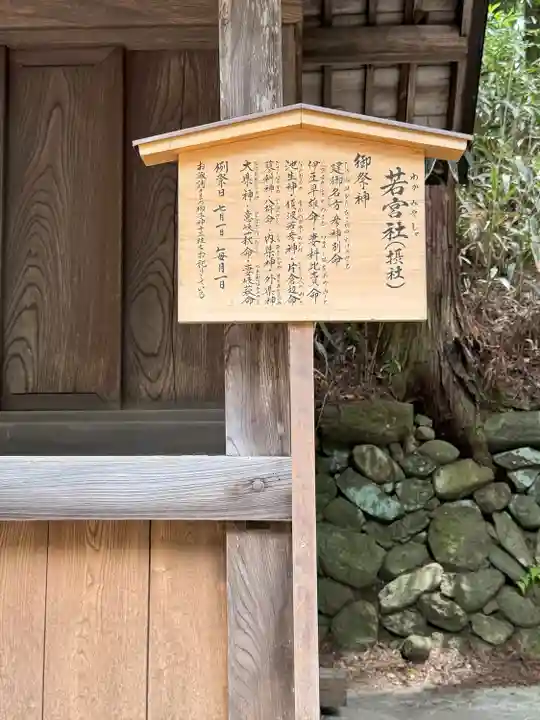 若宮社(摂社)
わかみやしゃ
御祭神
建御名方彦神別命
伊豆早雄命・妻科比賣命
池生神・須波若彦神・片倉邉命
蓼科神・八杵命・内県神・外県神
大県神・意岐萩命・妻岐萩命
例祭日 七月一日 毎月一日
お諏訪さまの御子神十三柱をお祀りしている